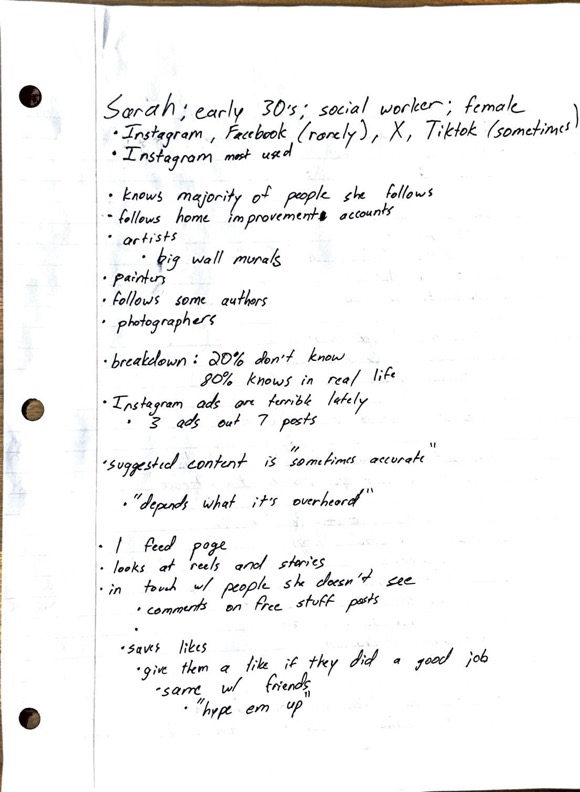 Sarah; early 30's; social worker; female
• Instagram, Facebook (rarely), X, Tiktok (sometimes)
• Instagram most used
• knows majority of people she follows
- follows home improvement accounts
• artists
• big wall murals
• painters
• follows some authors
• photographers
• breakdown: 20% don't know
80% knows in real life
• Instagram ads are terrible lately
• 3 ads out 7 posts
• suggested content is "sometimes accurate"
• "depends what it's overheard"
• 1 feed page
• looks at reels and stories
• in touch w/ people she doesn't see
• comments on free stuff posts
•
• saves likes
• give them a like if they did a good job
• same w/ friends
• "hype em up"